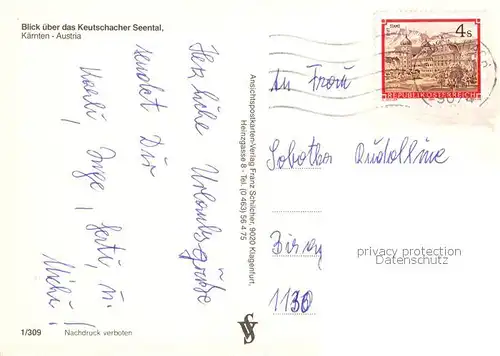 Blick über das Keutschacher Seental,
Kärnten - Austria
Herzliche Urlaubsgrüße
sendet Dir
Inge, Gerti, u.
Michi!
Ansichtspostkarten-Verlag Franz Schilcher, 9020 Klagenfurt,
Heinzgasse 8 - Tel. (0 463) 56 4 75
1/309 Nachdruck verboten
STAMS
4 S
REPUBLIK ÖSTERREICH
An Frau
Sobotka Rudolfine
privacy protection
Datenschutz